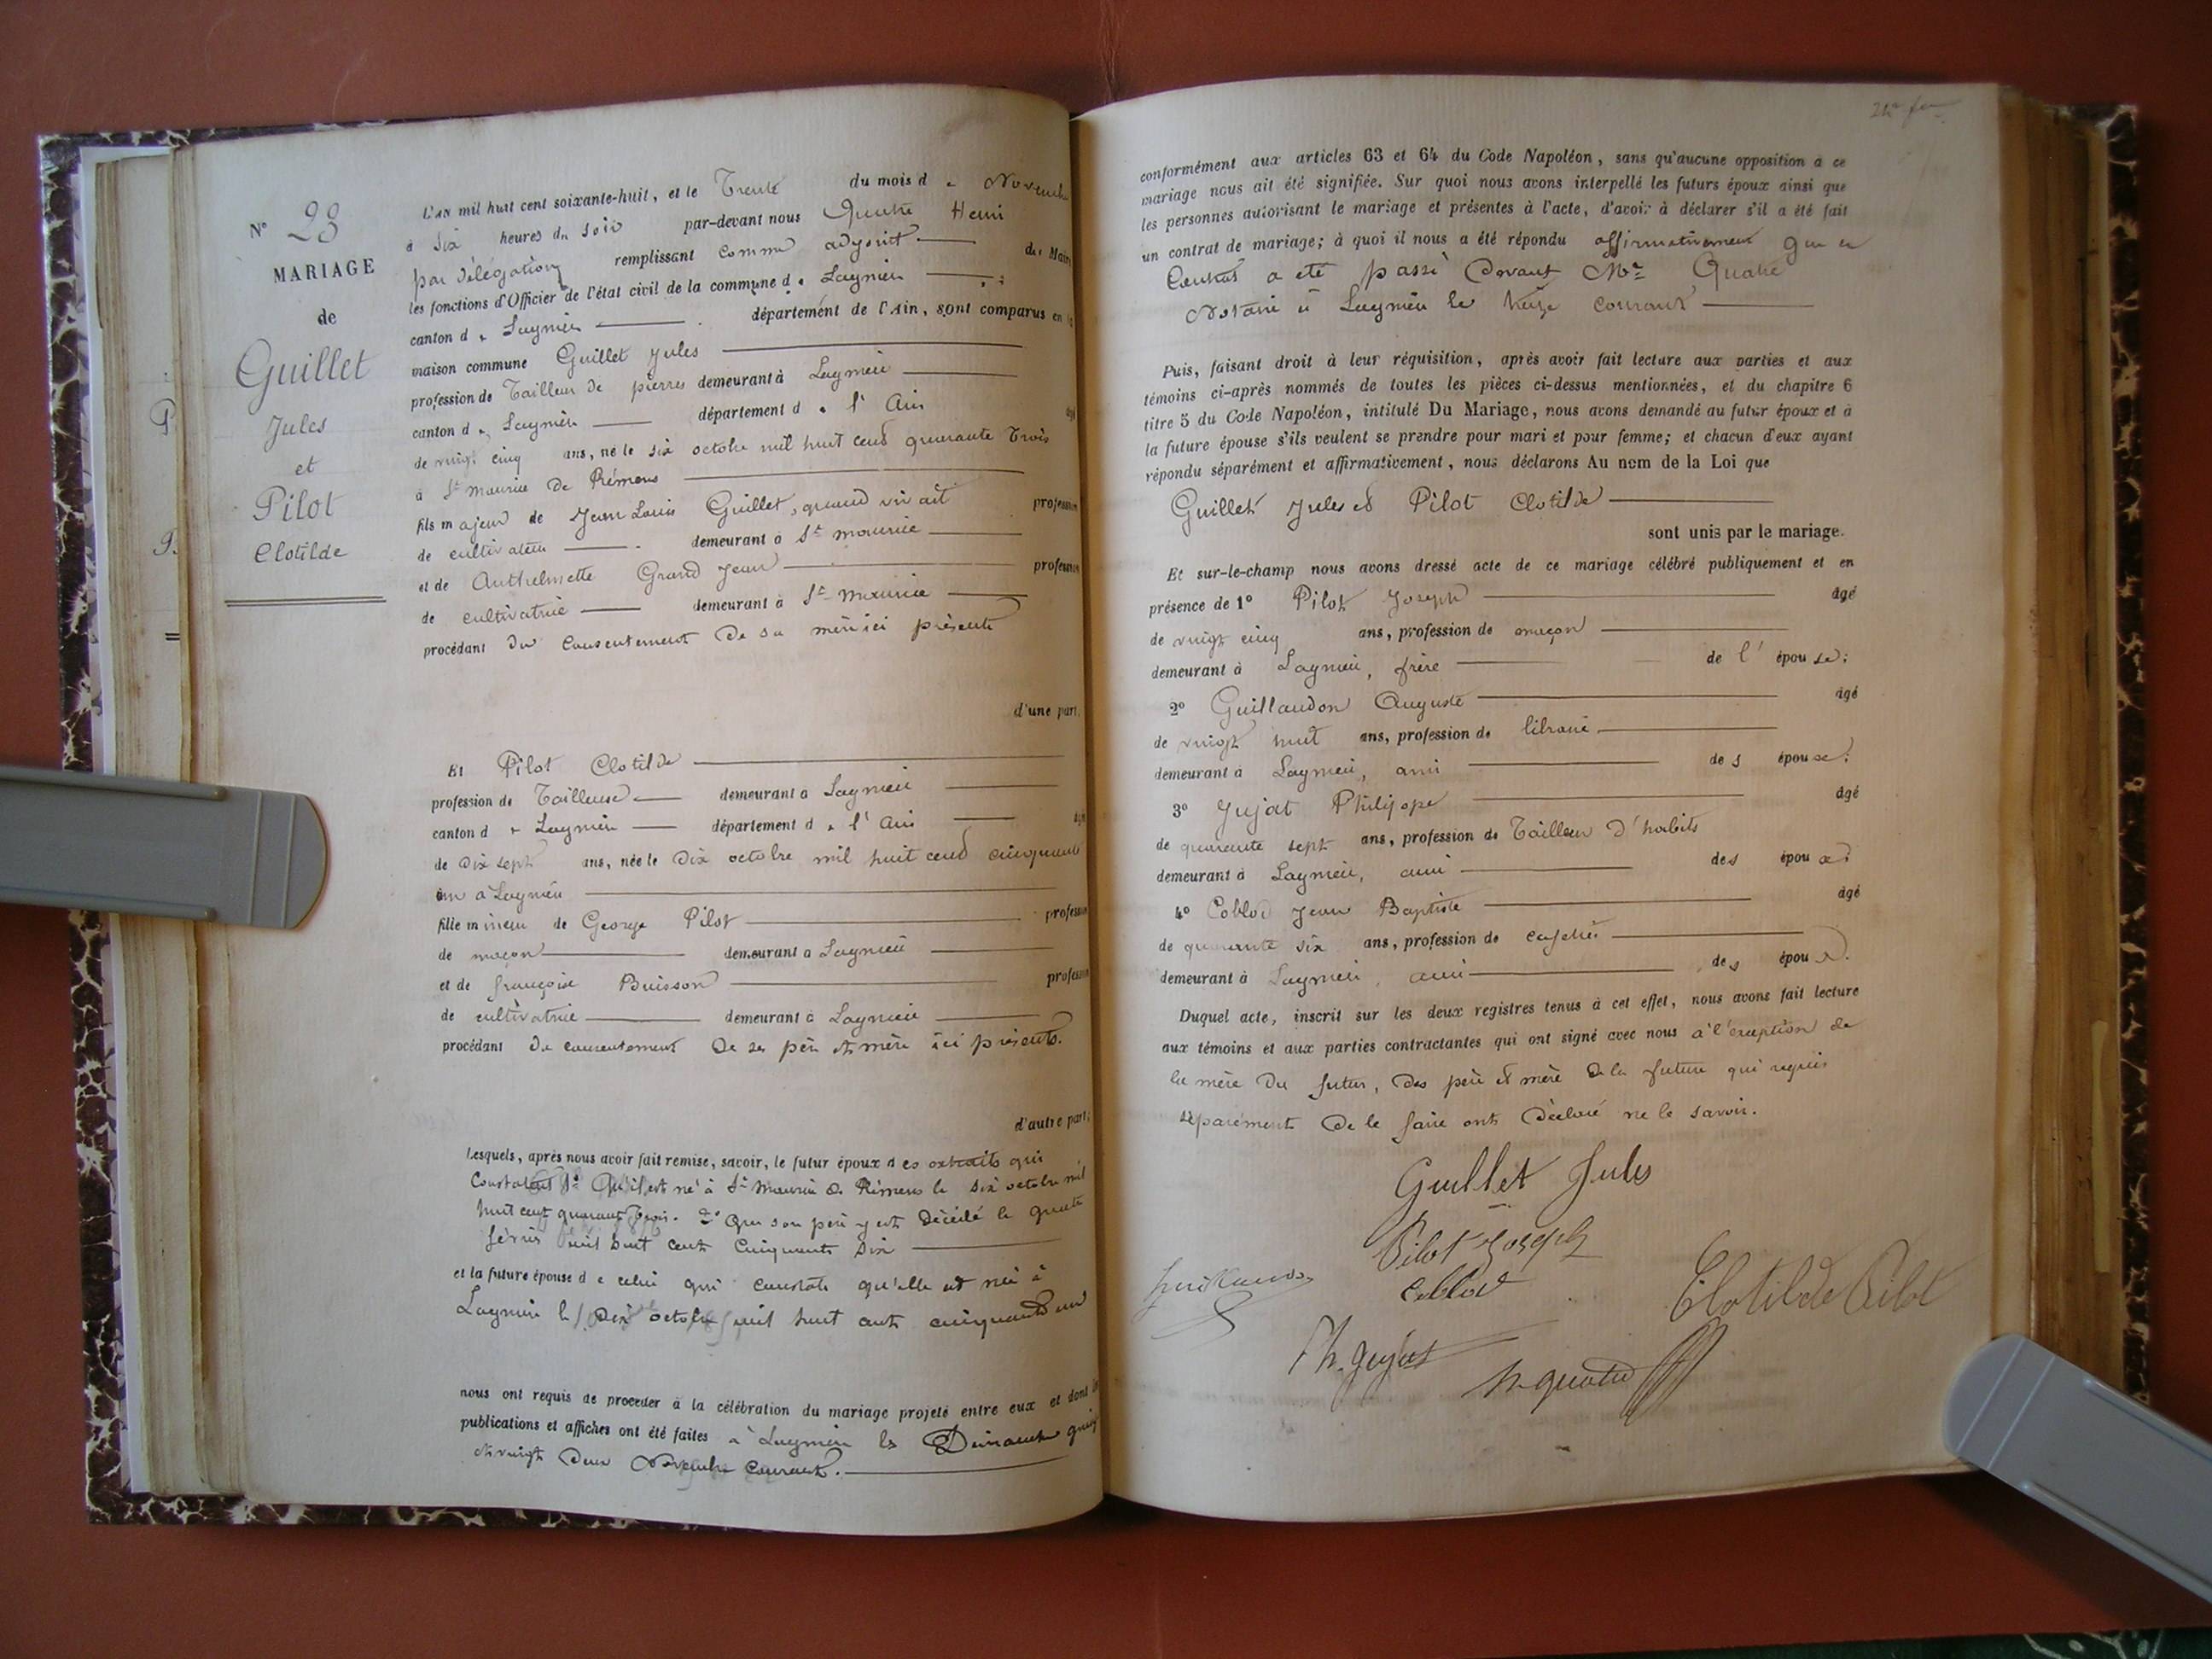 N° 23
MARIAGE
de
Guillet
Jules
et
Pilot
Clotilde
L'AN mil huit cent soixante-huit, et le Trente du mois d e Novembre
à Six heures du soir par-devant nous Quatre Henri
par délégation remplissant comme adjoint du Maire
les fonctions d'Officier de l'état civil de la commune d e Lagnieu
canton d e Lagnieu département de l'Ain, sont comparus en la
maison commune Guillet Jules
profession de Tailleur de pierres demeurant à Lagnieu
canton d e Lagnieu département d e l'Ain âgé
de vingt cinq ans, né le six octobre mil huit cent quarante Trois
à St maurice De Rémens
fils majeur de Jean Louis Guillet, quand vivait profession
de cultivateur demeurant à St maurice
et de Anthelmette Grand Jean profession
de cultivatrice demeurant à St maurice
procédant du consentement de sa mère ici présente
d'une part.
Et Pilot Clotilde
profession de Tailleuse demeurant à Lagnieu
canton d e Lagnieu département d e l'Ain âgée
de Dix sept ans, née le Dix octobre mil huit cent cinquante
un à Lagnieu
fille mineure de George Pilot profession
de maçon demeurant à Lagnieu
et de françoise Buisson profession
de cultivatrice demeurant à Lagnieu
procédant du consentement De ses père et mère ici présents.
d'autre part;
Lesquels, après nous avoir fait remise, savoir, le futur époux d es extraits qui
Constatent 1° Qu'il est né à St Maurice de Rémens le six octobre mil
huit cent quarante trois. 2° Que son père y est Décédé le quatre
février mil huit cent Cinquante Six
et la future épouse d e celui qui constate qu'elle est née à
Lagnieu le Dix octobre mil huit cent cinquante un
nous ont requis de procéder à la célébration du mariage projeté entre eux et dont les
publications et affiches ont été faites à Lagnieu les Dimanches quinze
et vingt Deux Novembre Courant.
conformément aux articles 63 et 64 du Code Napoléon, sans qu'aucune opposition à ce
mariage nous ait été signifiée. Sur quoi nous avons interpellé les futurs époux ainsi que
les personnes autorisant le mariage et présentes à l'acte, d'avoir à déclarer s'il a été fait
un contrat de mariage; à quoi il nous a été répondu affirmativement que ce
Contrat a été passé Devant Me Quatre
Notaire à Lagnieu le treize courant
Puis, faisant droit à leur réquisition, après avoir fait lecture aux parties et aux
témoins ci-après nommés de toutes les pièces ci-dessus mentionnées, et du chapitre 6
titre 5 du Code Napoléon, intitulé Du Mariage, nous avons demandé au futur époux et à
la future épouse s'ils veulent se prendre pour mari et pour femme; et chacun d'eux ayant
répondu séparément et affirmativement, nous déclarons Au nom de la Loi que
Guillet Jules et Pilot Clotilde
sont unis par le mariage.
Et sur-le-champ nous avons dressé acte de ce mariage célébré publiquement et en
présence de 1° Pilot Joseph âgé
de vingt cinq ans, profession de maçon
demeurant à Lagnieu, frère de l' épou se;
2° Guillaudon Auguste âgé
de vingt huit ans, profession de libraire
demeurant à Lagnieu, ami de s époux;
3° Jujat Philippe âgé
de quarante sept ans, profession de Tailleur D'habits
demeurant à Lagnieu, ami des époux;
4° Coblod Jean Baptiste âgé
de quarante six ans, profession de cafetier
demeurant à Lagnieu, ami des époux.
Duquel acte, inscrit sur les deux registres tenus à cet effet, nous avons fait lecture
aux témoins et aux parties contractantes qui ont signé avec nous à l'exception de
la mère Du futur, Des père et mère De la future qui requis
séparément De le faire ont Déclaré ne le savoir.
Guillet Jules
Pilot Joseph
Coblod
Clotilde Pilot
Ph. Jujat
h quatre